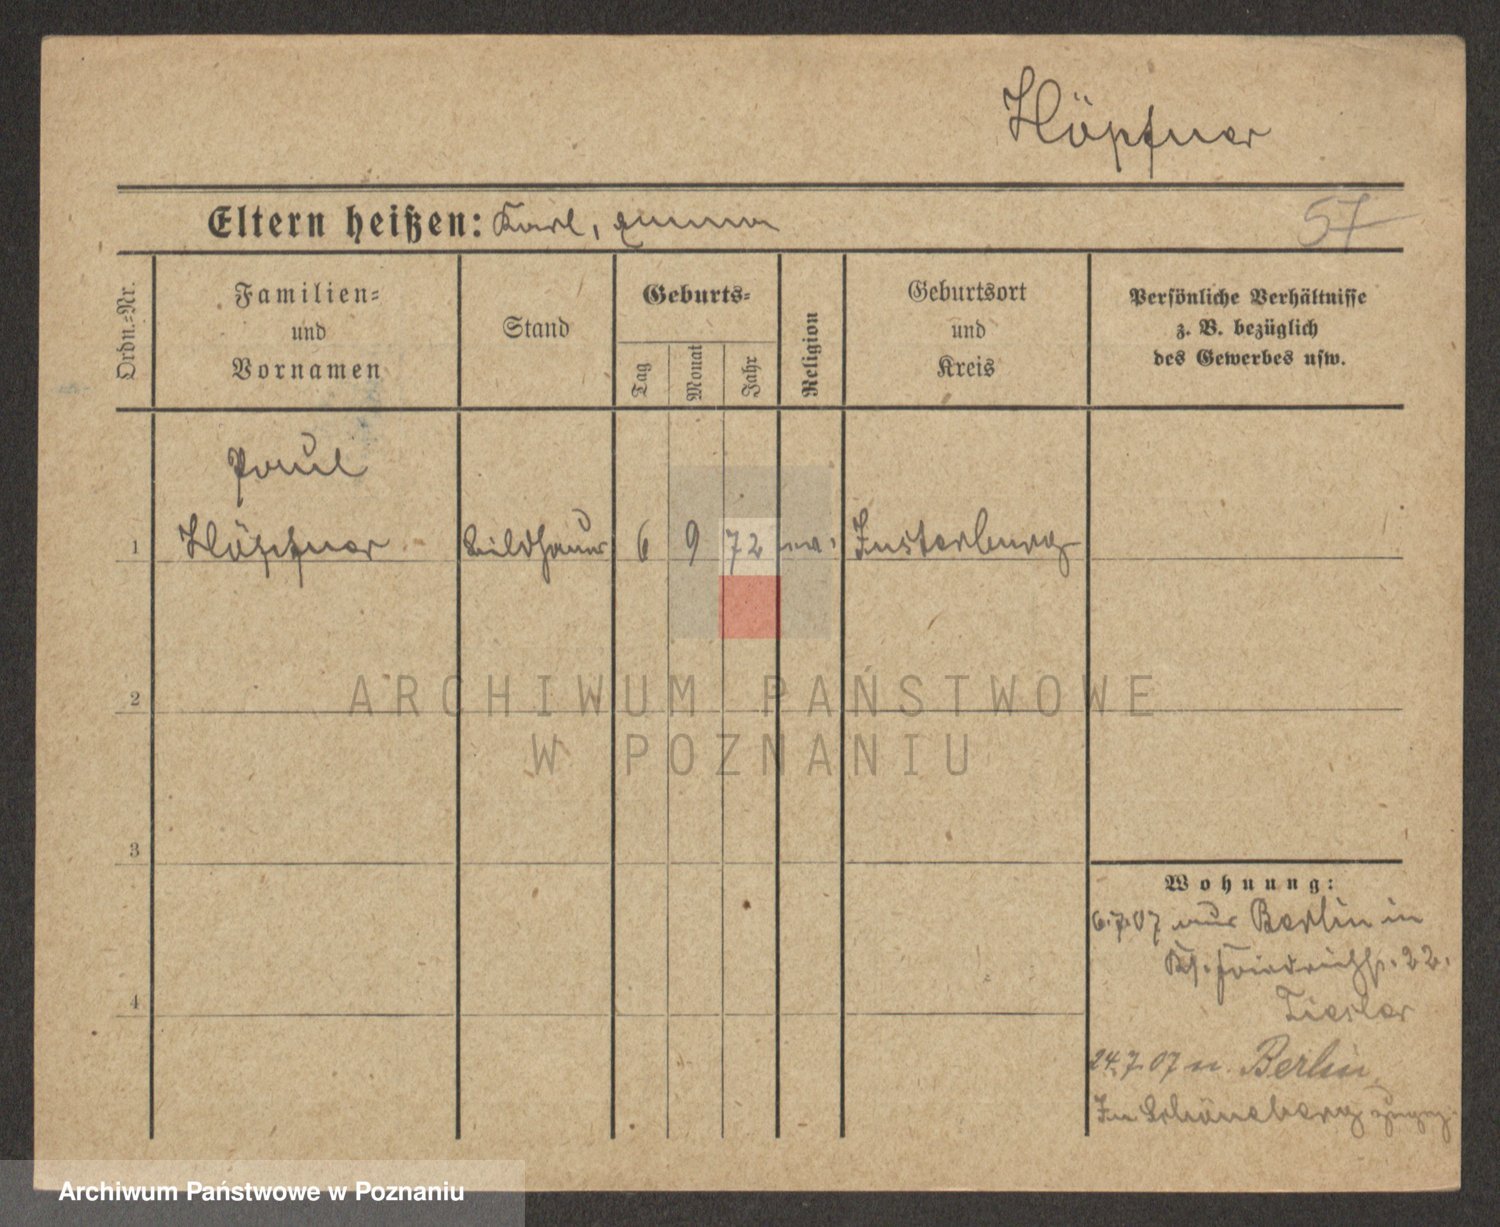 Höpfner
Eltern heißen: Karl, Emma
57
Ordn.-Nr.
Familien-
und
Vornamen
Stand
Geburts-
Tag
Monat
Jahr
Religion
Geburtsort
und
Kreis
Persönliche Verhältnisse
z. B. bezüglich
des Gewerbes usw.
Paul
1 Höpfner Bildhauer 6 9 72 ev. Insterburg
2
ARCHIWUM PAŃSTWOWE
W POZNANIU
3
Wohnung:
6.7.07 aus Berlin in
Friedrichstr. 22.
Tiesler
4
24.7.07 n. Berlin
In Schöneberg zugez.
Archiwum Państwowe w Poznaniu